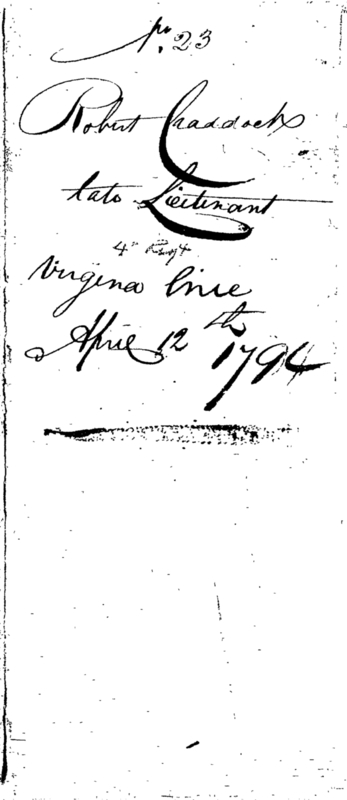 No. 23
Robert Craddocks
late Lieutenant
4th Regt
Virginea line
April 12th 1794